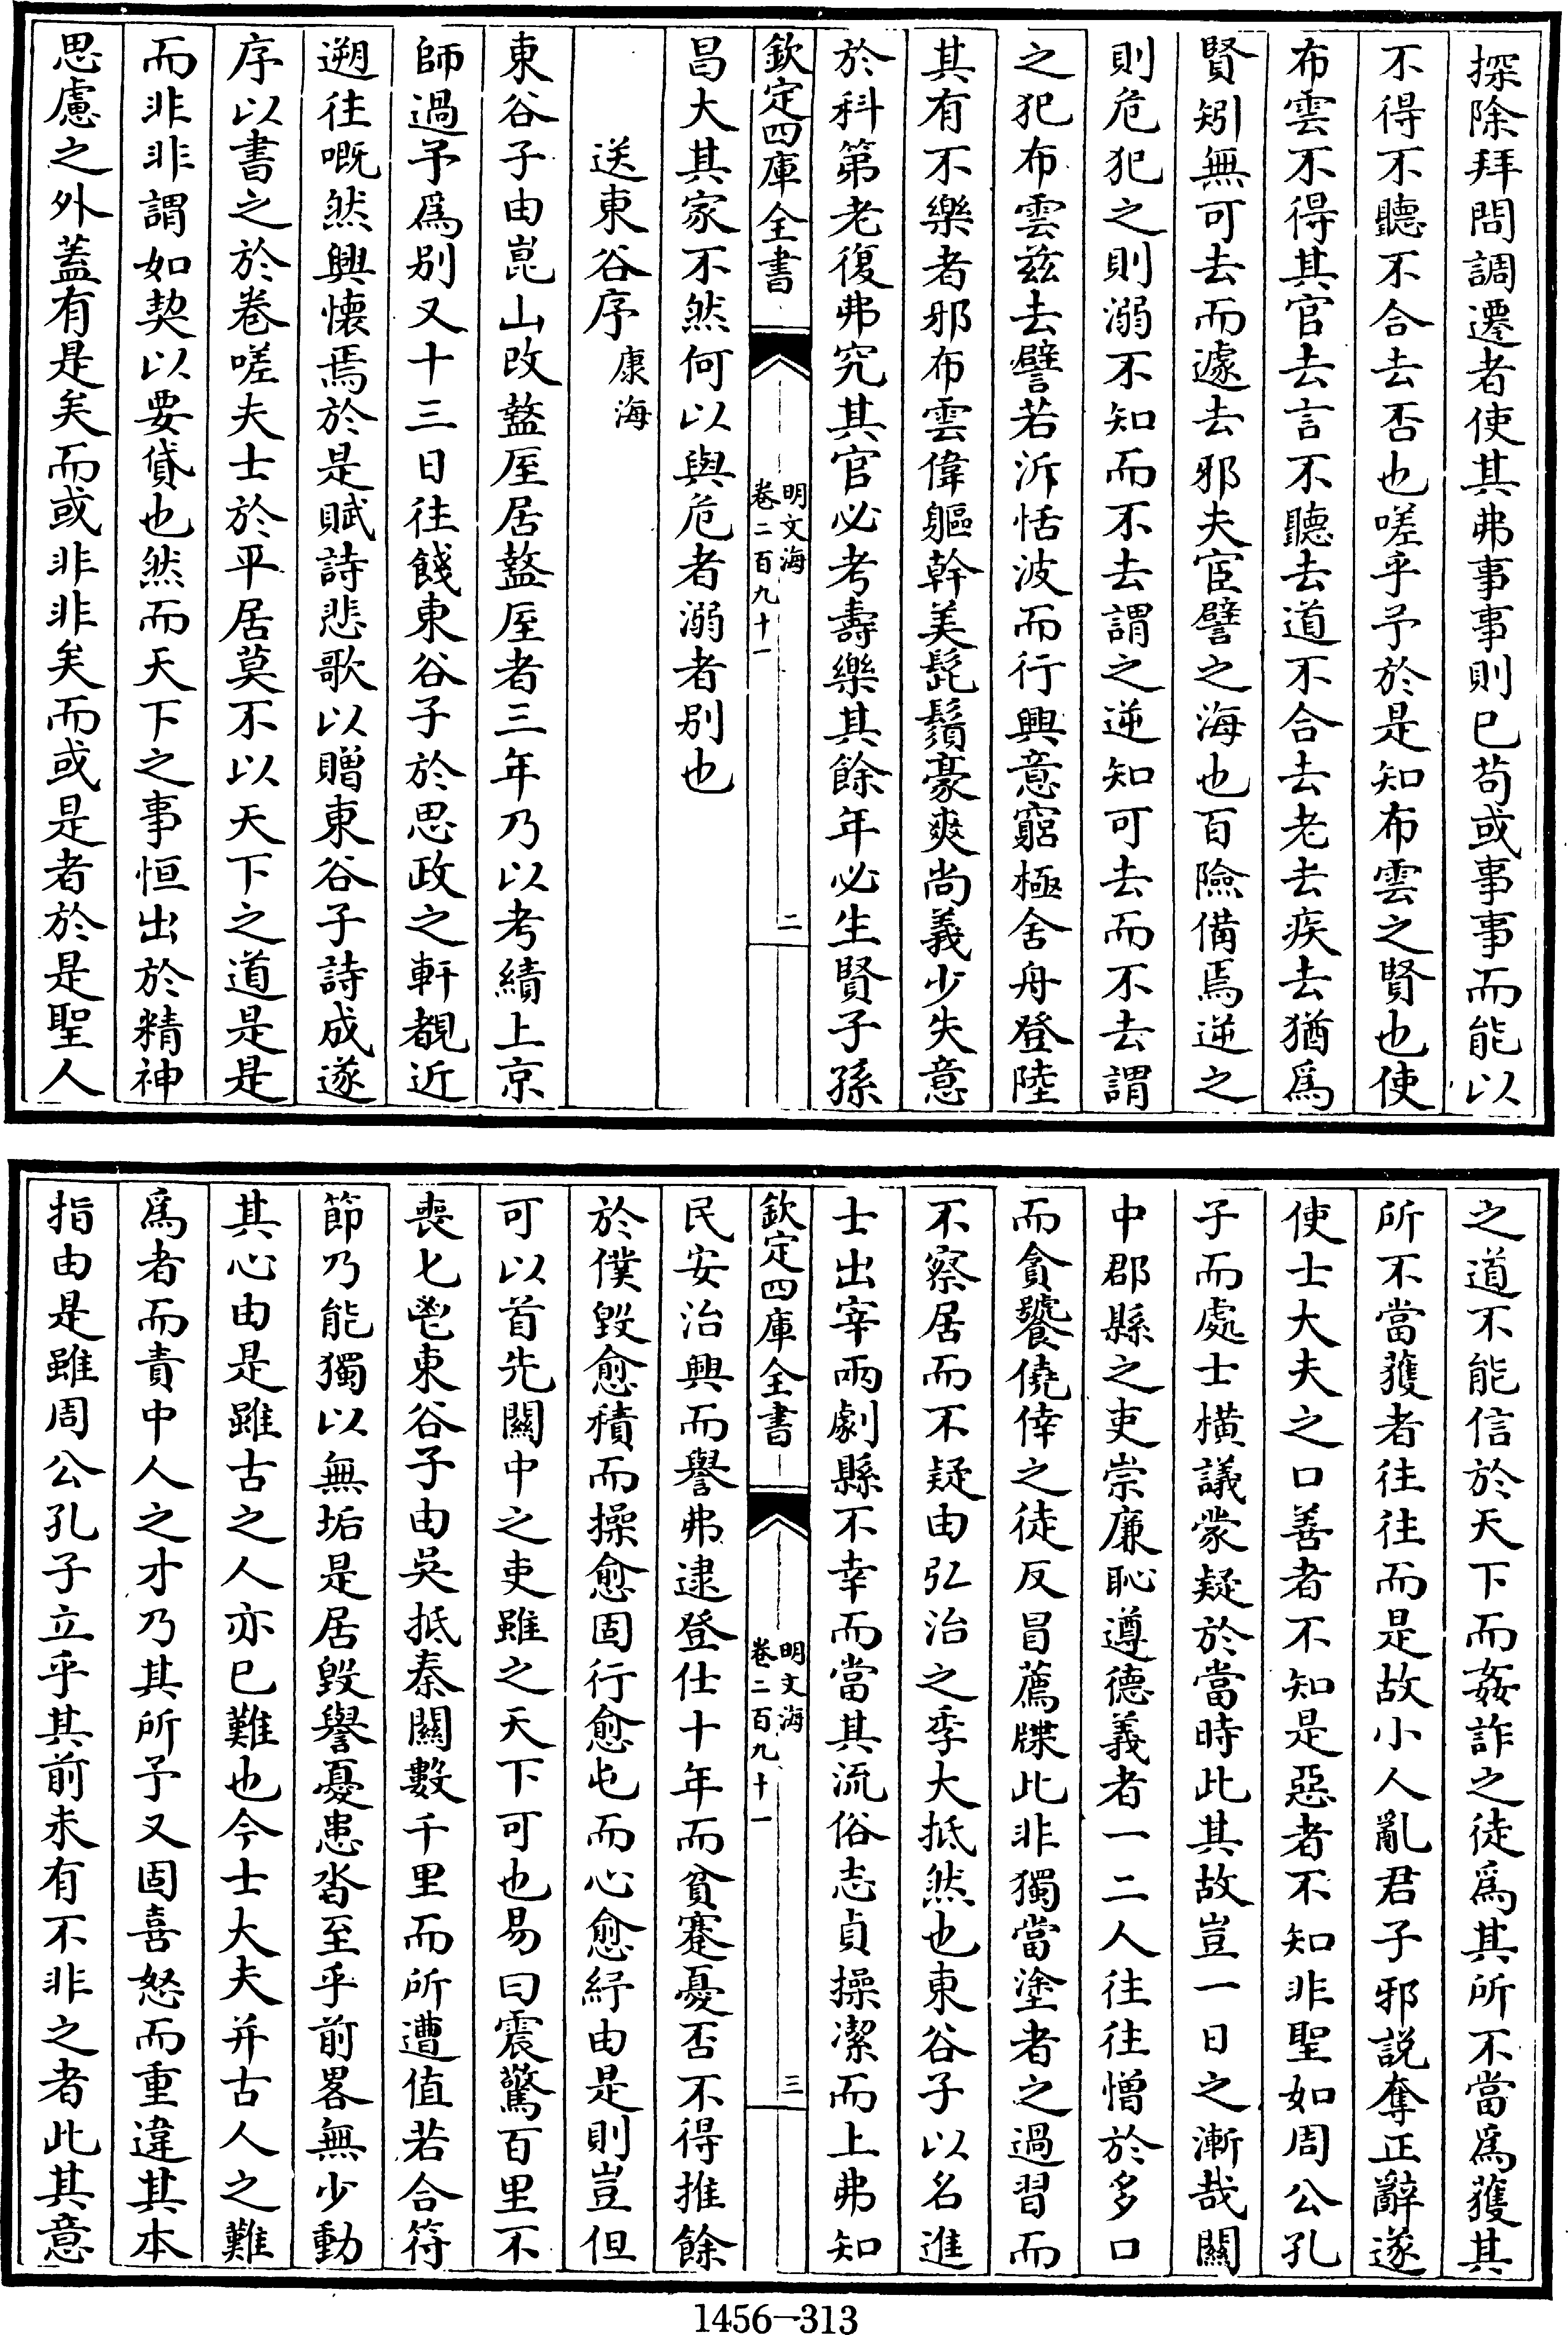 探除拜問調遷者使其弗事事則巳苟或事事而能以
不得不聽不合去否也嗟乎予於是知布雲之賢也使
布雲不得其官去言不聽去道不合去老去疾去猶爲
賢矧無可去而遽去邪夫宦譬之海也百險備焉逆之
則危犯之則溺不知而不去謂之逆知可去而不去謂
之犯布雲兹去譬若泝恬波而行興意窮極舍舟登陸
其有不樂者邪布雲偉軀幹美髭鬚豪爽尚義少失意
於科第老復弗究其官必考壽樂其餘年必生賢子孫
欽定四庫全書
明文海
卷二百九十一
二
昌大其家不然何以與危者溺者别也
送東谷序 康海
東谷子由崑山改盩厔居盩厔者三年乃以考績上京
師過予爲别又十三日往餞東谷子於思政之軒覩近
遡往嘅然興懐焉於是賦詩悲歌以贈東谷子詩成遂
序以書之於卷嗟夫士於平居莫不以天下之道是是
而非非謂如契以要貸也然而天下之事恒出於精神
思慮之外蓋有是矣而或非非矣而或是者於是聖人
之道不能信於天下而姦詐之徒爲其所不當爲獲其
所不當獲者往往而是故小人亂君子邪説奪正辭遂
使士大夫之口善者不知是惡者不知非聖如周公孔
子而處士横議蒙疑於當時此其故豈一日之漸哉關
中郡縣之吏崇廉恥遵德義者一二人往往憎於多口
而貪饕僥倖之徒反冒薦牒此非獨當塗者之過習而
不察居而不疑由弘治之季大抵然也東谷子以名進
士出宰兩劇縣不幸而當其流俗志貞操潔而上弗知
欽定四庫全書
明文海
卷二百九十一
三
民安治興而譽弗逮登仕十年而貧蹇憂否不得推餘
於僕毁愈積而操愈固行愈屯而心愈紓由是則豈但
可以首先關中之吏雖之天下可也易曰震驚百里不
喪匕鬯東谷子由吳抵秦關數千里而所遭值若合符
節乃能獨以無垢是居毁譽憂患沓至乎前畧無少動
其心由是雖古之人亦已難也今士大夫并古人之難
爲者而責中人之才乃其所予又固喜怒而重違其本
指由是雖周公孔子立乎其前未有不非之者此其意
1456—313